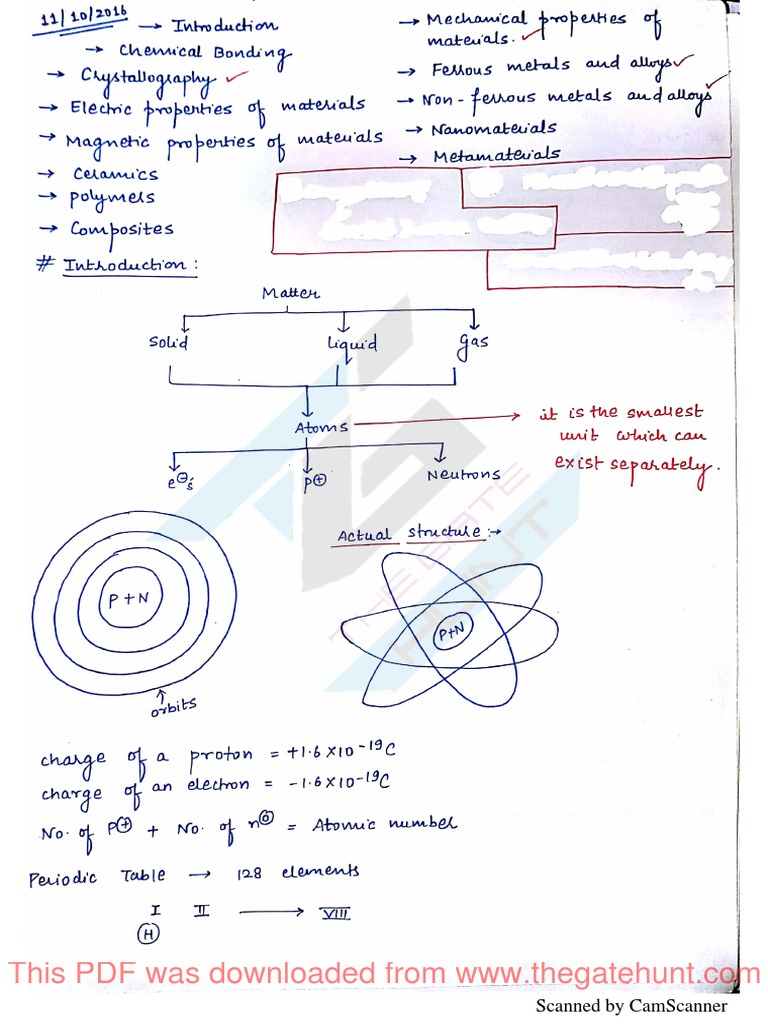 11/10/2016
→ Introduction
→ Chemical Bonding
→ Crystallography ✓
→ Electric properties of materials
→ Magnetic properties of materials
→ Ceramics
→ polymers
→ Composites
→ Mechanical properties of
materials. ✓
→ Ferrous metals and alloys ✓
→ Non-ferrous metals and alloys ✓
→ Nanomaterials
→ Metamaterials
# Introduction :
Matter
Solid Liquid Gas
Atoms → it is the smallest
unit which can
exist separately.
e⊖'s P⊕ Neutrons
Actual structure :→
P+N
orbits
P+N
THE GATE
HUNT
charge of a proton = +1.6 X10 -19C
charge of an electron = -1.6X10-19C
No. of P⊕ + No. of n⓪ = Atomic number
Periodic Table → 128 elements
I II → VIII
H
This PDF was downloaded from www.thegatehunt.com
Scanned by CamScanner